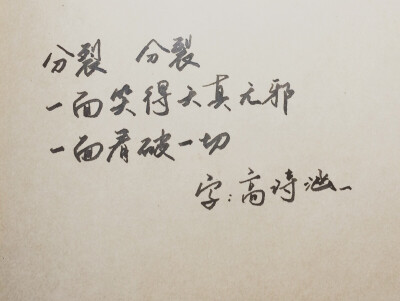 分裂 分裂
一面笑得天真无邪
一面看破一切
字:高琦涵